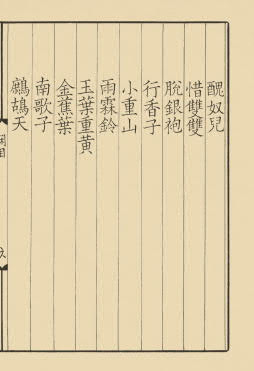 醜奴兒
惜雙雙
脫銀袍
行香子
小重山
雨霖鈴
玉葉重黃
金蕉葉
南歌子
鷓鴣天